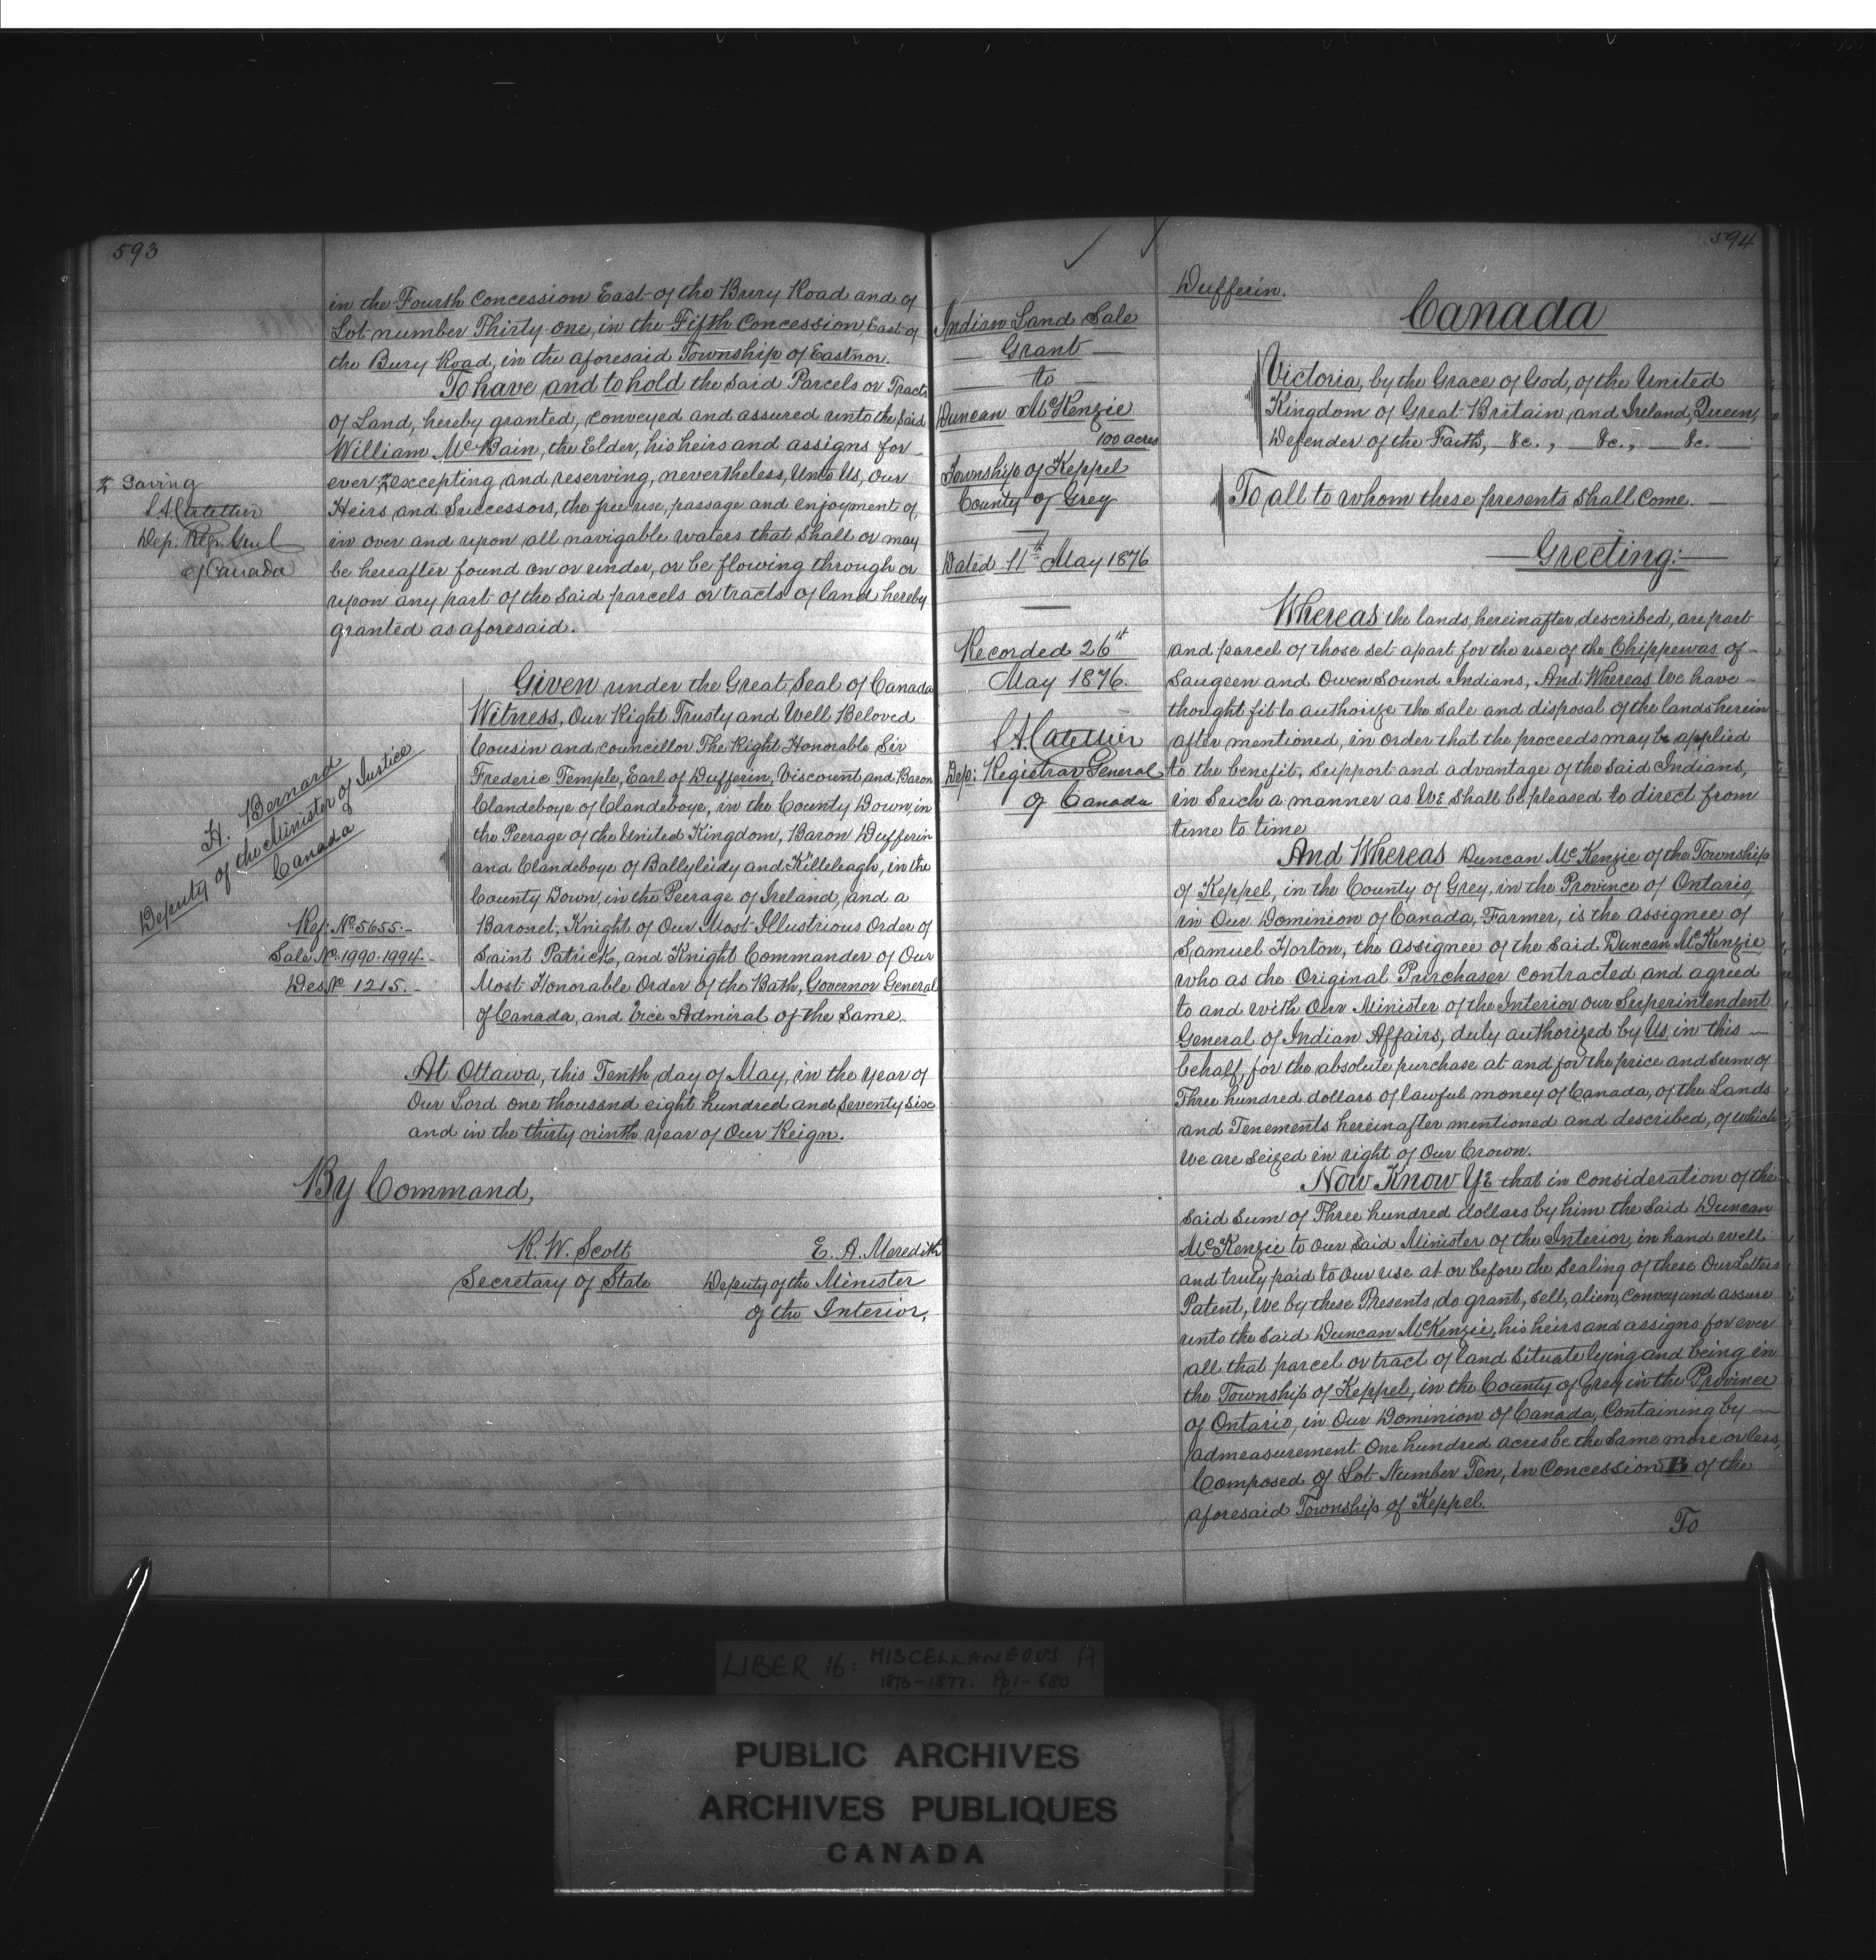 593
in the Fourth Concession East of the Bury Road and of
Lot number Thirty-one, in the Fifth Concession East of
the Bury Road, in the aforesaid Township of Eastnor.
To have and to hold the said Parcels or Tracts
of Land, hereby granted, conveyed and assured unto the said
William McBain, the Elder, his heirs and assigns for
ever, excepting and reserving, nevertheless, Unto Us, Our
Heirs and Successors, the free use, passage and enjoyment of,
in over and upon all navigable waters that shall or may
be hereafter found on or under, or be flowing through or
upon any part of the said parcels or tracts of land hereby
granted as aforesaid.
Saving
L.A. Catellier
Dep. Reg. Genl
of Canada
Given under the Great Seal of Canada
Witness, Our Right Trusty and Well Beloved
Cousin and councillor The Right Honorable Sir
Frederic Temple, Earl of Dufferin, Viscount and Baron
Clandeboye of Clandeboye, in the County Down, in
the Peerage of the United Kingdom, Baron Dufferin
and Clandeboye of Ballyleidy and Killeleagh, in the
County Down, in the Peerage of Ireland, and a
Baronet, Knight of Our Most Illustrious Order of
Saint Patrick, and Knight Commander of Our
Most Honorable Order of the Bath, Governor General
of Canada, and Vice Admiral of the Same.
H. Bernard
Deputy of the Minister of Justice
Canada
Ref: No 5655.
Sale No 1990-1994.
Des No 1215.
At Ottawa, this Tenth day of May, in the year of
Our Lord one thousand eight hundred and seventy six
and in the thirty ninth year of Our Reign.
By Command,
R. W. Scott
Secretary of State
E. A. Meredith
Deputy of the Minister
of the Interior,
594
Indian Land Sale
Grant
to
Duncan McKenzie
100 acres
Township of Keppel
County of Grey
Dated 11th May 1876
Recorded 26th
May 1876.
L.A. Catellier
Dep: Registrar General
of Canada
Dufferin.
Canada
Victoria, by the Grace of God, of the United
Kingdom of Great Britain, and Ireland, Queen,
Defender of the Faith, &c., &c., &c.
To all to whom these presents shall come.
Greeting:
Whereas the lands, hereinafter, described, are part
and parcel of those set apart for the use of the Chippewas of
Saugeen and Owen Sound Indians, And Whereas We have
thought fit to authorize the sale and disposal of the lands herein
after mentioned, in order that the proceeds may be applied
to the benefit, support and advantage of the said Indians,
in such a manner as WE shall be pleased to direct from
time to time
And Whereas Duncan McKenzie of the Township
of Keppel, in the County of Grey, in the Province of Ontario,
in Our Dominion of Canada, Farmer, is the assignee of
Samuel Horton, the assignee of the said Duncan McKenzie
who as the Original Purchaser contracted and agreed
to and with Our Minister of the Interior our Superintendent
General of Indian Affairs, duly authorized by Us, in this
behalf, for the absolute purchase at and for the price and sum of
Three hundred dollars of lawful money of Canada, of the Lands
and Tenements hereinafter mentioned and described, of which
We are seized in right of Our Crown.
Now Know YE that in consideration of the
said sum of Three hundred dollars by him the said Duncan
McKenzie to Our said Minister of the Interior, in hand well
and truly paid to Our use at or before the sealing of these Our Letters
Patent, We by these Presents, do grant, sell, alien, convey and assure
unto the said Duncan McKenzie, his heirs and assigns for ever
all that parcel or tract of land situate lying and being in
the Township of Keppel, in the County of Grey in the Province
of Ontario, in Our Dominion of Canada, Containing by
admeasurement One hundred acres be the same more or less,
Composed of Lot Number Ten, in Concession B of the
aforesaid Township of Keppel.
To
LIBER 16: MISCELLANEOUS A
1873-1877. Pp 1-680
PUBLIC ARCHIVES
ARCHIVES PUBLIQUES
CANADA